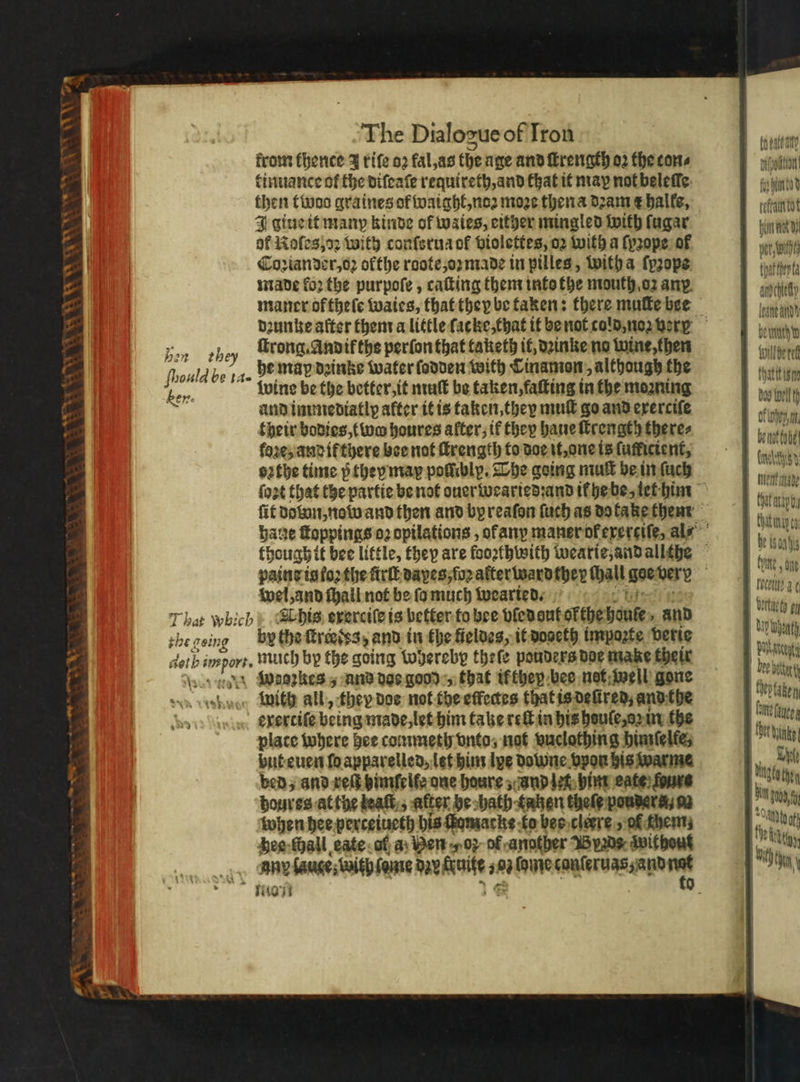 The Dialogue of Iron
from thence I rise or fal, as the age and strength or the con-
tinuance of the disease requireth, and that it may not be lesse
then twoo graines of waight, nor more then a dram & halfe,
I giue it many kinde of waies, either mingled with sugar
of Roses, or with conserua of violettes, or with a syrope of
Coriander, or of the roote, or made in pilles, with a syrope
made for the purpose, casting them into the mouth, or any
maner of these waies, that they be taken: there muste bee
drunke after them a little sacke, that it be not cold, nor very
strong. And if the person that taketh it, drinke no wine, then
hen they
should be ta-
ken.
he may drinke water sodden with Cinamon, although the
wine be the better, it must be taken, fasting in the morning
and immediatly after it is taken, they must go and exercise
their bodies, two houres after, if they haue strength there-
fore, and if there bee not strength to doe it, one is sufficient,
or the time ẏ they may possibly. The going must be in such
sort that the partie be not ouer wearied: and if he be, let him
sit down, now and then and by reason such as do take them
haue stoppings or opilations, of any maner of exercise, al-
though it bee little, they are foorthwith wearie, and all the
paine is for the first dayes, for afterward they shall goe very
wel, and shall not be so much wearied.
That which
the going
doth import.
This exercise is better to bee vsed out of the house, and
by the streetes, and in the fieldes, it dooeth importe verie
much by the going whereby these pouders doe make their
woorkes, and doe good, that if they bee not well gone
with all, they doe not the effectes that is desired, and the
exercise being made, let him take rest in his house, or in the
place where hee commeth vnto, not vnclothing himselfe,
but euen so apparelled, let him lye downe vpon his warme
bed, and rest himselfe one houre, and let him eate foure
houres at the least, after he hath taken these pouders, or
when hee perceiueth his stomacke to bee cleere, of them,
hee shall eate of a Hen, or of another Byrde without
any sauce, with some dry fruite, or some conseruas, and not
to